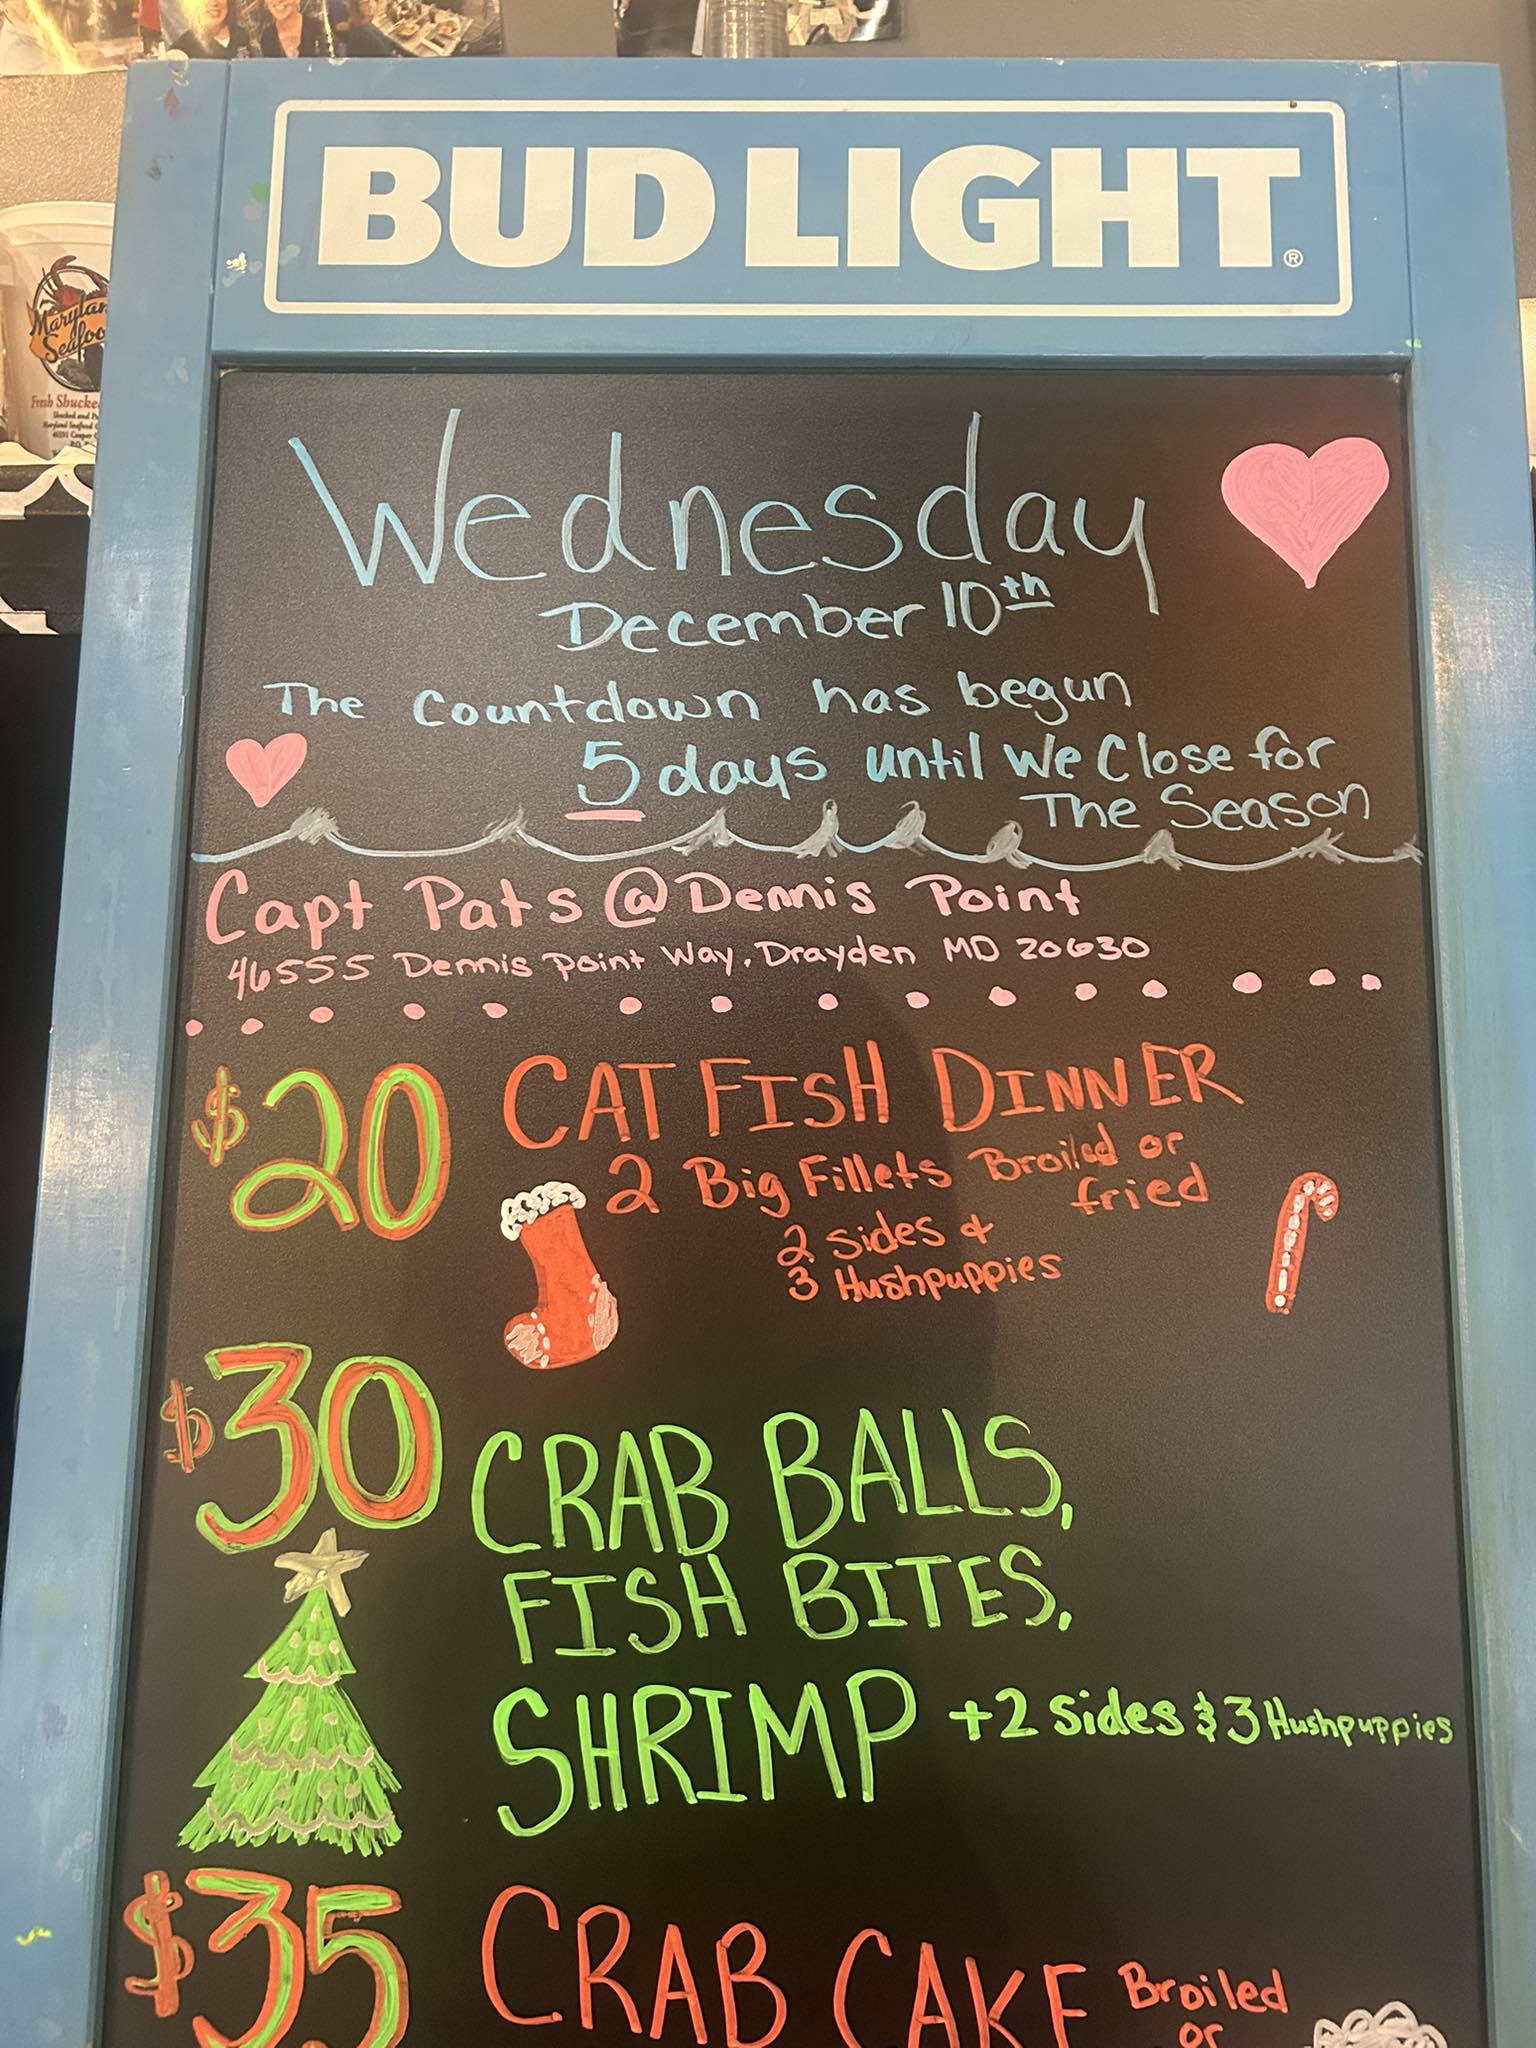 BUD LIGHT®
Marylan
Seafoo
Fresh Shucke
Wednesday
December 10th
The Countdown has begun
5 days until We Close for
The Season
Capt Pats @ Dennis Point
46555 Dennis Point Way, Drayden MD 20630
$20 CATFISH DINNER
2 Big Fillets Broiled or
fried
2 sides &
3 Hushpuppies
$30 CRAB BALLS,
FISH BITES,
SHRIMP +2 Sides & 3 Hushpuppies
$35 CRAB CAKE Broiled
or